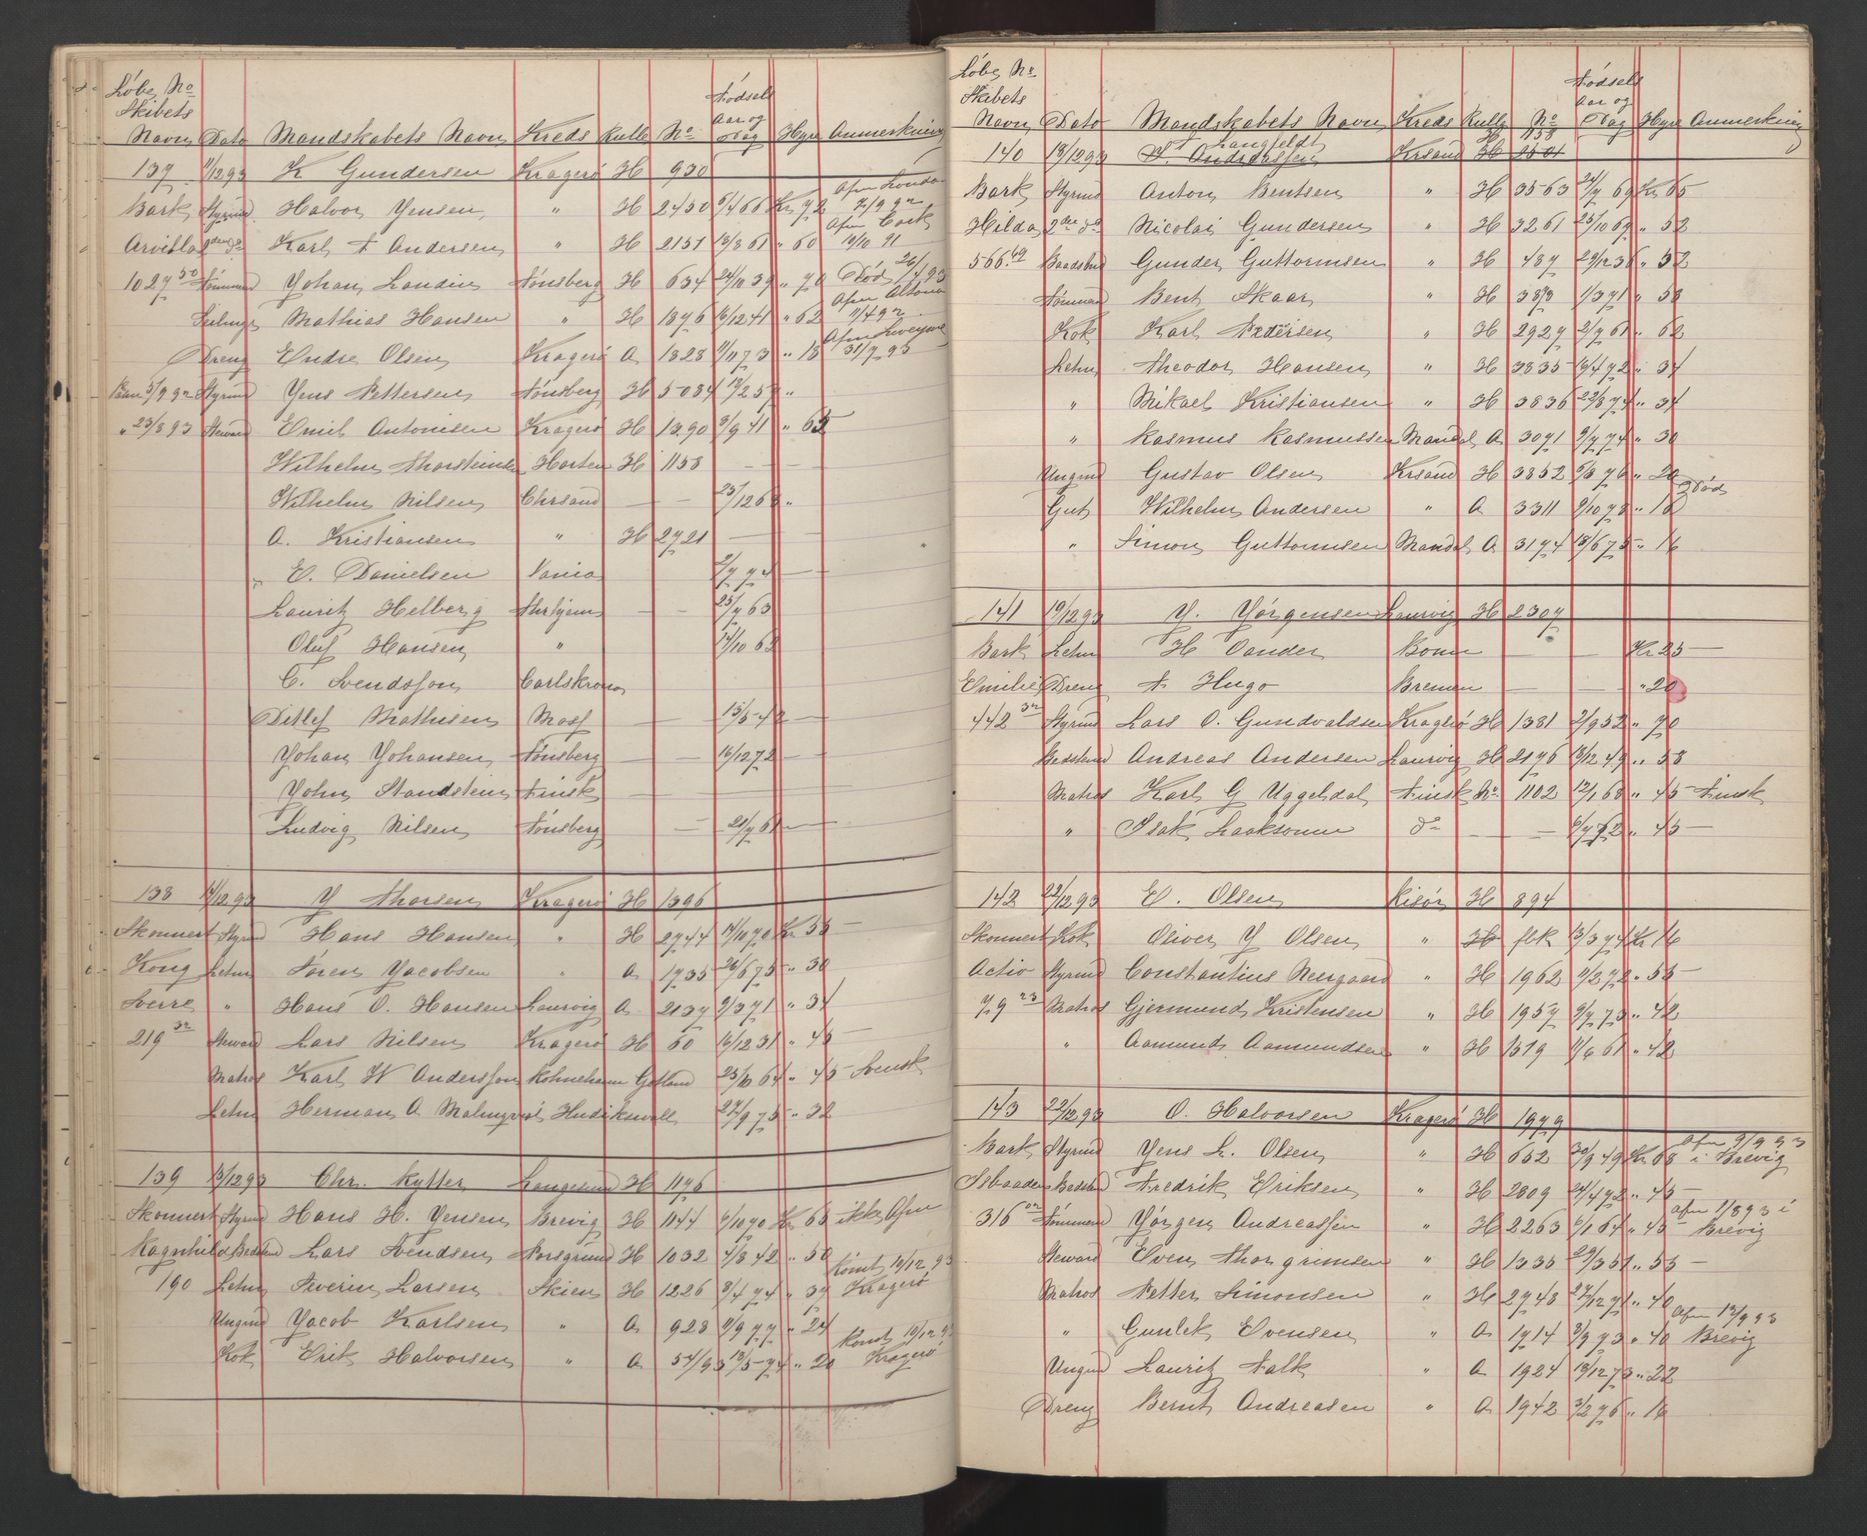 Løbe No
Skibets
Navn Dato Mandskabets Navn Kreds Rulle No Fødsels Aar og Dag Hyre Anmerkning
137 11/12 93 K Gundersen Kragerø H 930
Bark Styrmd Halvor Jensen " H 2450 5/4 66 Kr 72 Afm London 7/9 92
2den do Karl F Andersen " H 2151 13/8 61 " 60 Afm Cork 19/10 91
1027 50 Tømmermd Johan Londin Tønsberg H 634 24/10 39 " 70 Død 26/4 93
Mathias Hansen " H 1876 16/12 41 " 62 Afm Altona 11/4 92
Dreng Endre Olsen Kragerø A 1828 11/11 73 " 15 Afm 31/7 93
5/9 92 Styrmd Jens Pettersen Tønsberg H 5084 19/2 57 "
" 23/8 93 Steward Emil Antonisen Kragerø H 1390 3/9 41 " 65
Wilhelm Horten H 1158 — —
Wilhelm Nilsen Chrsand — — 25/12 68 "
A. Kristiansen " H 2721 — —
E. Danielsen 2/7 74 —
Lauritz Helberg — — 25/7 63
Oluf Hansen " 14/10 62
C. Svendsson Carlskrona
Ditlef Mathisen Moss — — 15/5 42 —
Johan Johansen Tønsberg — — 16/12 72 —
John Standstein Finsk — — —
Ludvig Nilsen Tønsberg — 21/7 61 —
138 14/12 93 J Thorsen Kragerø H 1396
Skonnert Styrmd Hans Hansen " H 2744 14/10 70 Kr 55 —
Kong Letm Søren Jacobsen " A 1735 26/6 75 " 30
Sverre " Hans O. Hansen Laurvig A 2137 9/3 71 " 34
219 32 Steward Lars Nilsen Kragerø H 50 16/12 31 " 45 —
Matros Karl W Andersson Gotland 25/10 64 " 45 — Svensk
Letm Herman A Malmqvist Hudikswall 27/9 75 " 32
139 13/12 93 Chr. Rytter Langesund H 1176
Skonnert Styrmd Hans H. Jensen Brevig H 1144 6/10 70 Kr 65 ikke Afm
Ragnhild Bedstmd Lars Svendsen Porsgrund H 1032 4/8 42 " 50
190 Letm Severin Larsen Skien H 1226 8/4 74 " 37 Rømt 19/12 93 Kragerø
Ungmd Jacob Karlsen " A 928 11/9 77 " 24
Kok Erik Halvorsen " A 54/93 13/5 74 " 20 Rømt 19/12 93 Kragerø
Løbe No
Skibets
Navn Dato Mandskabets Navn Kreds Rulle No Fødsels Aar og Dag Hyre Anmerkning
Langfeldt H 158
140 19/12 93 Anderssen Krsand H 2501
Bark Styrmd Anton Bentsen " H 3563 24/7 69 Kr 65
Hilda 2den do Nicolai Gundersen " H 3261 25/10 69 " 52
566.49 Baadsmd Gunder Guttormsen " H 487 29/12 36 " 52
Tømmermd Bent Skaar " H 1/3 71 " 58
Kok Karl Pedersen " H 2927 2/7 61 " 62
Letm Theodor Hansen " H 3835 16/4 72 " 34
" Mikael Kristiansen " H 3836 22/8 74 " 34
" Rasmus Rasmussen Mandal A 3071 9/7 74 " 30
Ungmd Gustav Olsen Krsand H 3852 5/8 76 " 20
Gut Wilhelm Andersen " A 3311 9/10 78 " 18 Død
" Simon Guttormsen Mandal A 3174 18/6 75 " 16
141 19/12 93 J. Jørgensen Laurvig H 2307
Bark Letm H Vander — — Kr 25 —
Emilie Dreng F Hugo Bremen — — " 20
442 32 Styrmd Lars O. Gundvaldsen Kragerø H 1381 2/9 52 " 70
Bedstmd Andreas Andersen Laurvig H 2176 13/12 49 " 58
Matros Karl G Uggelsdal Finsk No 1102 12/1 68 " 45 — Finsk
" Isak Laaksonen do — — 6/7 72 " 45 —
142 22/12 93 E. Olsen Risør H 894
Skonnert Kok Oliver J Olsen " H fbk 13/3 74 Kr 16
Activ Styrmd Constantius Neergaard " H 1962 11/2 72 " 55 —
79 23 Matros Gjermund Kristensen " H 1957 9/7 73 " 42
" Aamund Aamundsen " H 1519 11/6 61 " 42
143 22/12 93 O. Halvorsen Kragerø H 1979
Bark Styrmd Jens L. Olsen " H 652 30/9 49 Kr 68 Afm 9/9 93 i Brevig
Isbaaden Bedstmd Fredrik Eriksen " H 2809 24/4 72 " 45 —
316 02 Tømmermd Jørgen Andreassen " H 2263 6/1 64 " 45 Afm 1/8 93 i Brevig
Steward Even Thorgrimsen " H 1335 29/3 51 " 55 —
Matros Petter Simonsen " H 2748 27/12 71 " 40
" Gunlek Evensen " A 1914 3/9 73 " 40 Afm 12/9 93 Brevig
Ungmd Lauritz Falk " A 1924 18/12 73 " 22
Dreng Bernt Andreasen " A 1942 3/2 76 " 16